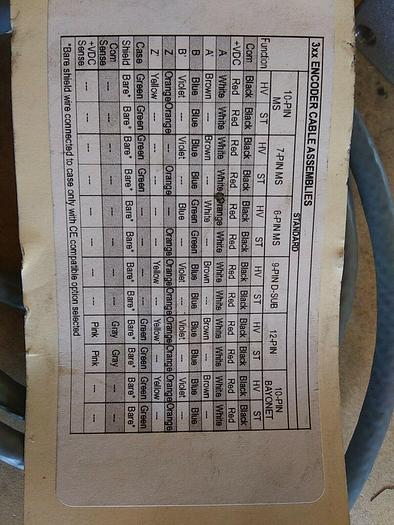 3xx ENCODER CABLE ASSEMBLIES
STANDARD
10-PIN MS 7-PIN MS 6-PIN MS 9-PIN D-SUB 12-PIN 10-PIN BAYONET
Function HV ST HV ST HV ST HV ST HV ST HV ST
Com Black Black Black Black Black Black Black Black Black Black Black Black
+VDC Red Red Red Red Red Red Red Red Red Red Red Red
A White White White White Orange White White White White White White White
A' Brown --- Brown --- White --- Brown --- Brown --- Brown ---
B Blue Blue Blue Blue Green Blue Blue Blue Blue Blue Blue
B' Violet --- Violet --- Blue --- Violet --- Violet --- Violet ---
Z Orange Orange --- Orange --- Orange Orange Orange Orange Orange Orange Orange
Z' Yellow --- --- --- --- --- Yellow --- Yellow --- Yellow ---
Case Green Green Green Green --- --- --- --- Green Green Green Green
Shield Bare* Bare* Bare* Bare* Bare* Bare* Bare* Bare* Bare* Bare* Bare* Bare*
Com Sense --- --- --- --- --- --- --- --- Gray Gray --- ---
+VDC Sense --- --- --- --- --- --- --- --- Pink Pink --- ---
*Bare shield wire connected to case only with CE compatible option selected